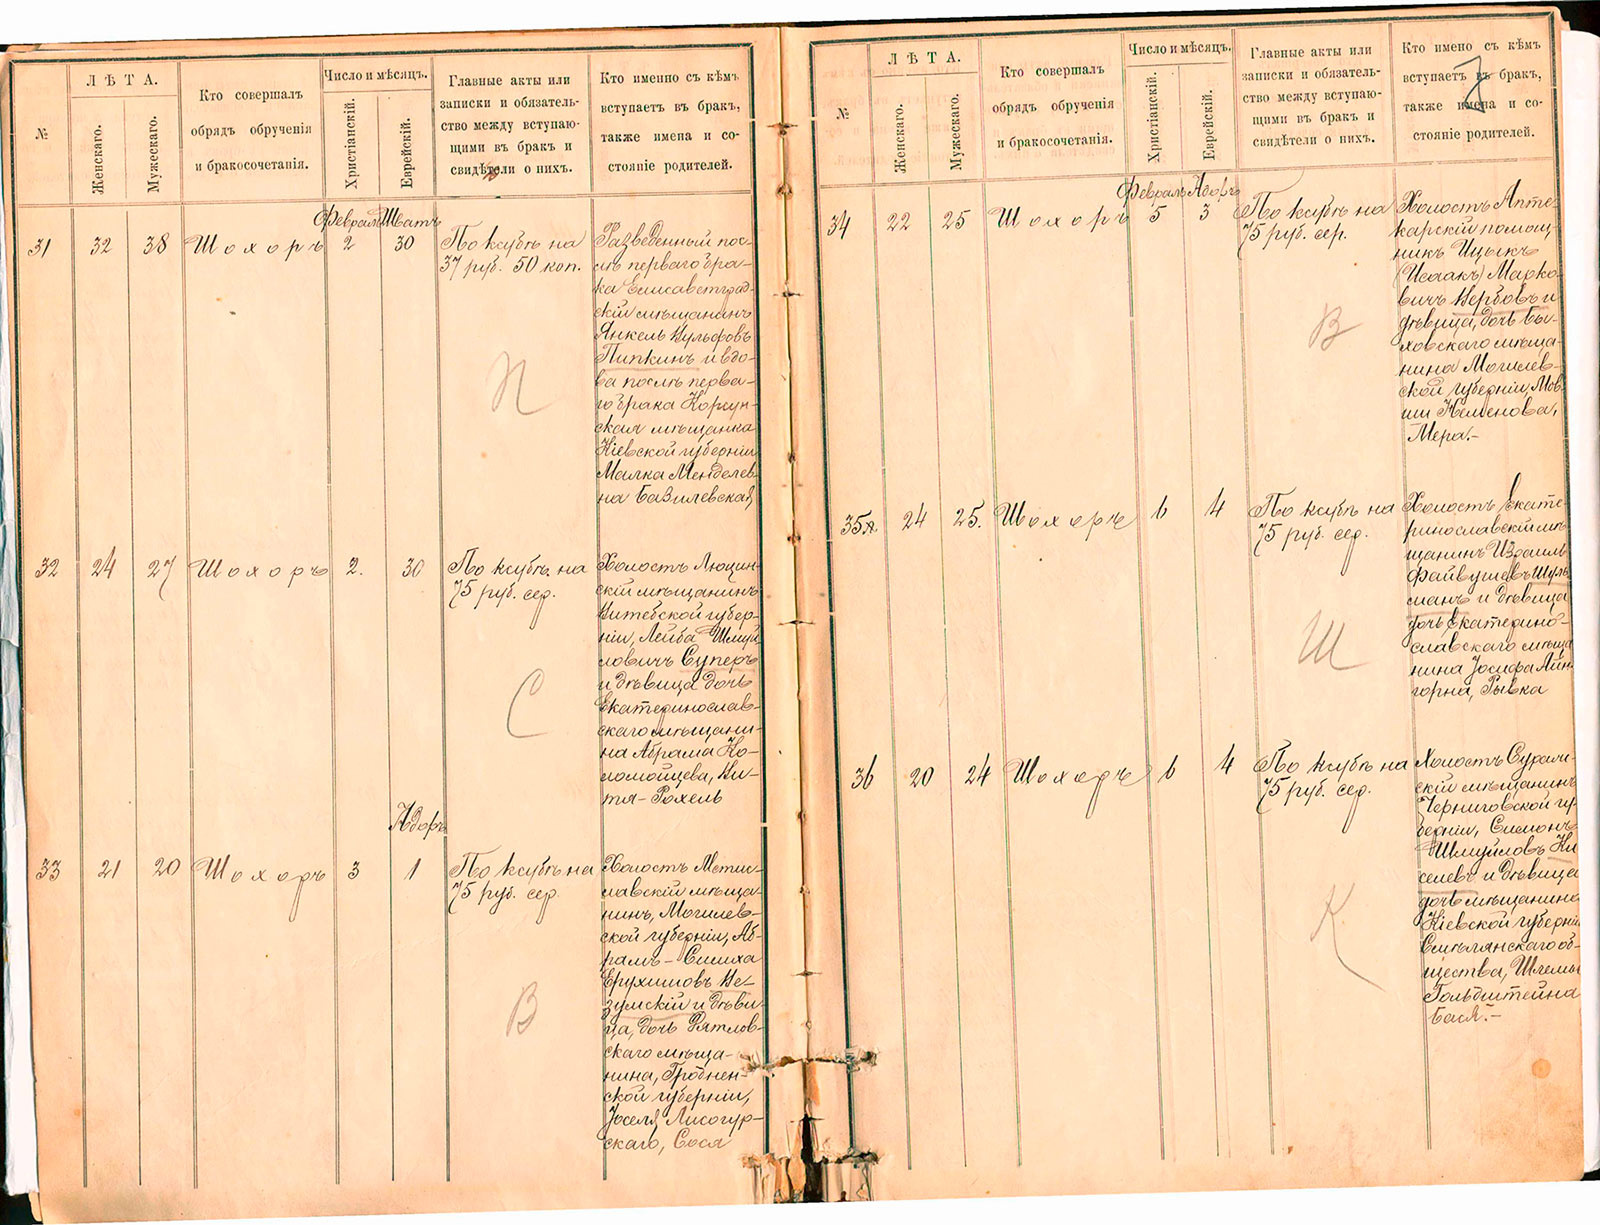 №
ЛѢТА.
Женскаго.
Мужескаго.
Кто совершалъ
обрядъ обрученія
и бракосочетанія.
Число и мѣсяцъ.
Христіанскій.
Еврейскій.
Главные акты или
записки и обязатель-
ство между вступаю-
щими въ бракъ и
свидѣтели о нихъ.
Кто именно съ кѣмъ
вступаетъ въ бракъ,
также имена и со-
стояніе родителей.
Февраль Шватъ
31 32 38 Шохоръ 2 30
По ксубѣ на
37 руб. 50 коп.
Разведенный пос-
лѣ перваго бра-
ка Елисаветград-
скій мѣщанинъ
Янкель Вульфовъ
Пипкинъ и вдо-
ва послѣ перва-
го брака Корсун-
ская мѣщанка
Кіевской губерніи
Малка Менделев-
на Базилевская
П
32 24 27 Шохоръ 2. 30
По ксубѣ на
75 руб. сер.
Холостъ Люцин-
скій мѣщанинъ
Витебской губер-
ніи, Лейба Шмуй
ловичъ Суперъ
и дѣвица дочь
Екатеринослав-
скаго мѣщани-
на Абрама Ко-
ломойцева, Ви-
тя-Рохель
С
Адоръ
33 21 20 Шохоръ 3 1
По ксубѣ на
75 руб. сер.
Холостъ Мстис-
лавскій мѣща-
нинъ, Могилев-
ской губерніи, Аб-
рамъ-Симха
Ерухимовъ Ве-
зумскій и дѣви
ца, дочь
скаго мѣща-
нина, Гроднен-
ской губерніи,
Іоселя Лисогур-
скаго, Сося
В
7
№
ЛѢТА.
Женскаго.
Мужескаго.
Кто совершалъ
обрядъ обрученія
и бракосочетанія.
Число и мѣсяцъ.
Христіанскій.
Еврейскій.
Главные акты или
записки и обязатель-
ство между вступаю-
щими въ бракъ и
свидѣтели о нихъ.
Кто имено съ кѣмъ
вступаетъ въ бракъ,
также имена и со-
стояніе родителей.
Февраль Адоръ
34 22 25 Шохоръ 5 3
По ксубѣ на
75 руб. сер.
Холостъ Апте-
карскій помощ-
никъ Ицыкъ
(Исаакъ) Марко-
вичъ Вербовъ и
дѣвица, дочь Бы-
ховскаго мѣща-
нина Могилев-
ской губерніи, Мов
ши
Мера.-
В
35 24 25. Шохоръ 6 4
По ксубѣ на
75 руб. сер.
Холостъ Екате-
ринославскій мѣ
щанинъ Израиль
Файвушевъ Шуль
манъ и дѣвица
дочь Екатерино-
славскаго мѣща
нина Іосифа Айн
горна, Рывка
Ш
36 20 24 Шохоръ 6 4
По ксубѣ на
75 руб. сер.
Холостъ Суражс-
скій мѣщанинъ
Черниговской гу-
берніи, Симонъ
Шмуйловъ Ки
селевъ и дѣвица
дочь мѣщанина
Кіевской губерніи
Смѣлянскаго об-
щества, Шлемы
Гольдштейна
Бася.-
К